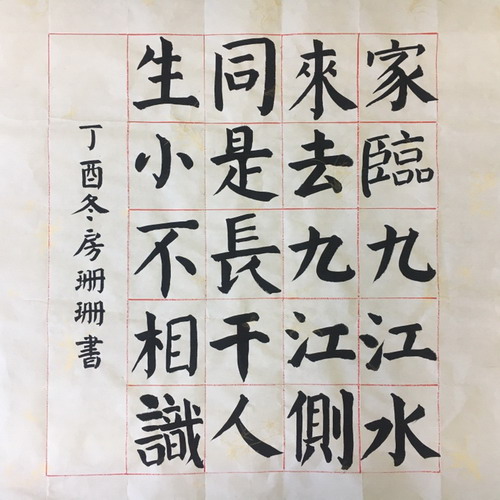 家臨九江水
來去九江側
同是長干人
生小不相識
丁酉冬房珊珊書